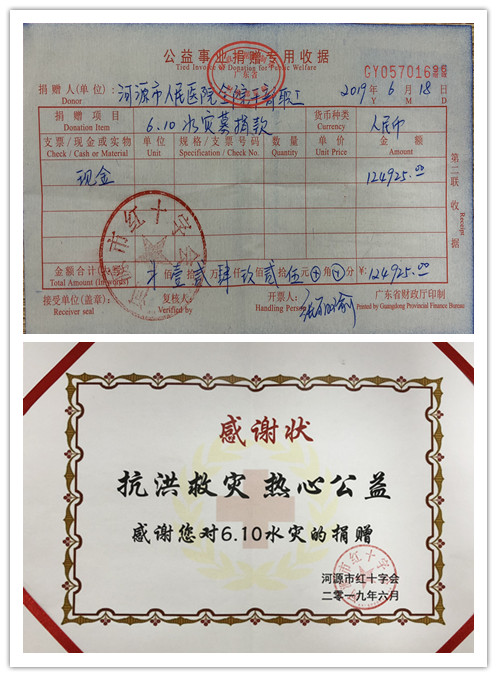 公益事业捐赠专用收据
Tied Invoice of Donation for Public Welfare
GY057016
捐赠人(单位): 河源市人民医院全院干部职工 2019 6 18
Donor Y M D
捐赠项目 6.10水灾募捐款 货币种类 人民币
Donation Item Currency
支票/现金或实物 单位 规格/支票号码 数量 单价 金额
Check / Cash or Material Unit Specification / Check No. Quantity Unit Price Amount
现金 124925.00
第二联 收据 Receipt
市红十字会
金额合计 壹 贰 肆 玖 佰 贰 拾 伍 元 角 分 ¥: 124925.00
Total Amount (In words)
接受单位(盖章): 复核人: 开票人: 广东省财政厅印制
Receiver seal Verified by Handling Person Printed by Guangdong Provincial Finance Bureau
感谢状
抗洪救灾 热心公益
感谢您对6.10水灾的捐赠
河源市红十字会
二零一九年六月